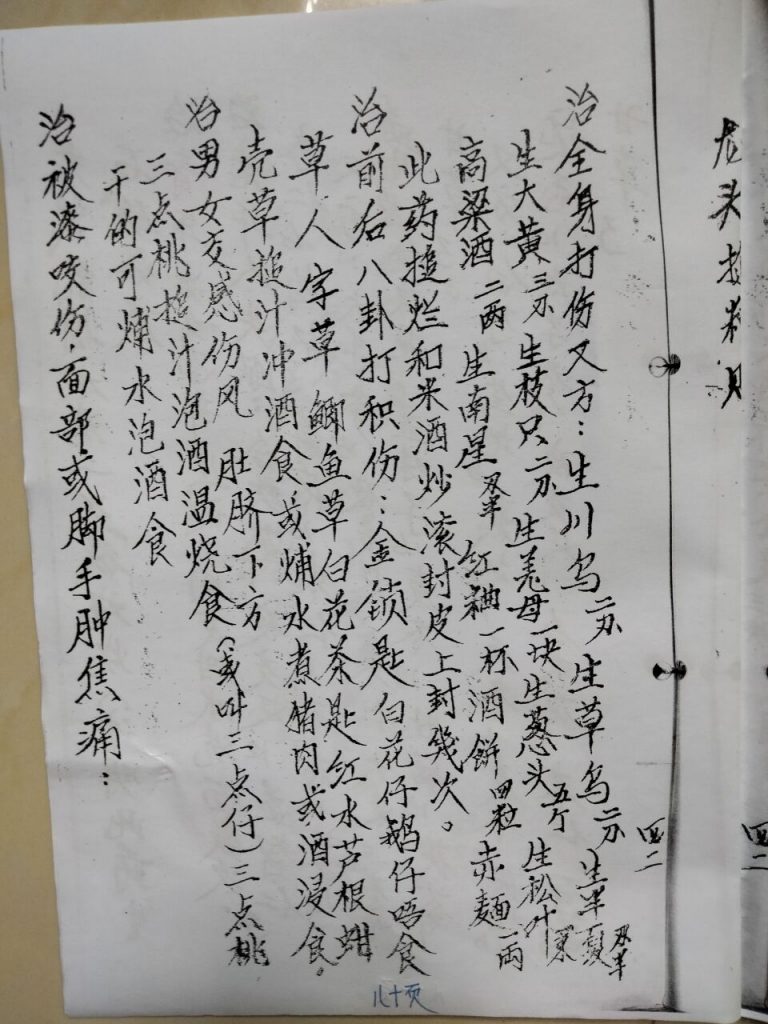 龙头
四二
四二
治全身打伤又方：生川乌二刃生草乌二刃生半夏刄半
生大黄三刃生枝只二刃生羌母一块生葱头五个生松叶
高粱酒二两生南星刄半红粬一杯酒餅四粒赤麵一两
此药搥烂和米酒炒滚封皮上封幾次。
治前后八卦打积伤：金锁匙白花仔鹅仔唔食
草人字草鲫鱼草白花茶匙红水芦根蚶
壳草搥汁冲酒食或焿水煮猪肉或酒浸食。
治男女交感伤风肚脐下方
三点桃搥汁泡酒温烧食（或叫三点仔）三点桃
干的可焿水泡酒食
治被漆咬伤，面部或脚手肿焦痛：
八十页